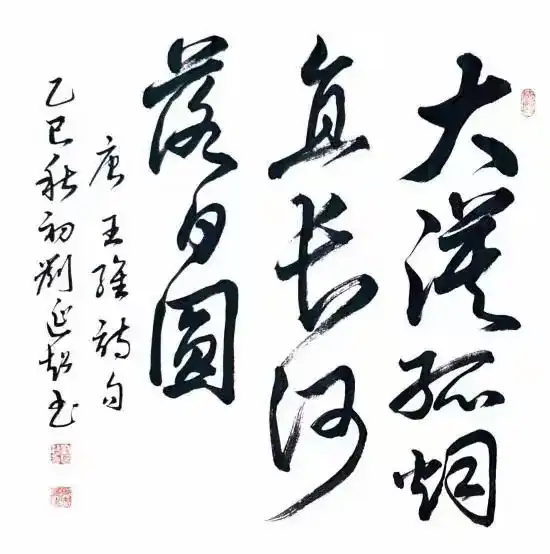 大漠孤烟
直长河
落日圆
唐王维诗句
乙巳秋初刘延超书